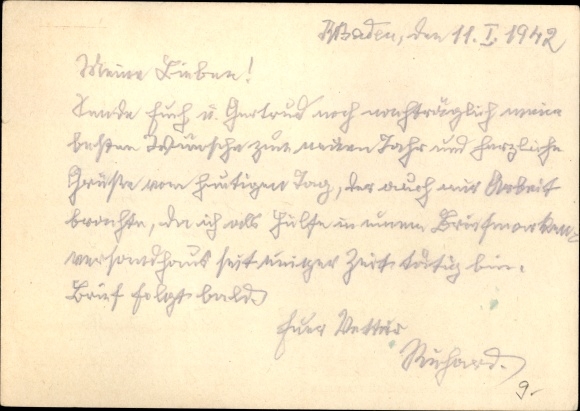 Baden, den 11. I. 1942
Meine Lieben!
Sende Euch u. Gertrud noch nachträglich meine
besten Wünsche zum neuen Jahr und herzliche
Grüße vom heutigen Tag, der auch mir Arbeit
brachte, da ich als Hülfe in einem Briefmarken-
versandhaus seit einiger Zeit tätig bin.
Brief folgt bald
Euer Vetter
Richard.
9.-